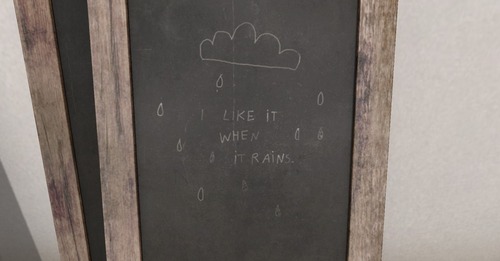 I LIKE IT
WHEN
IT RAINS.